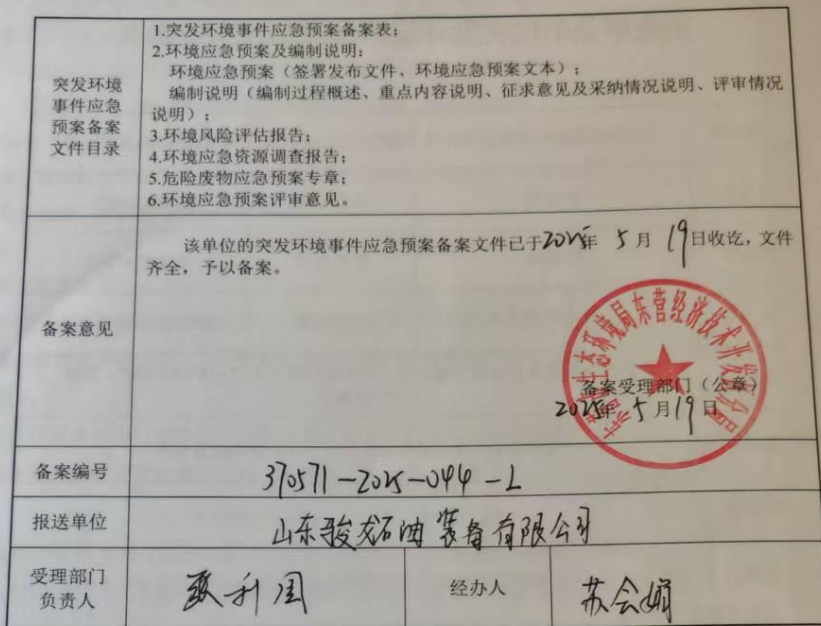 突发环境
事件应急
预案备案
文件目录
1.突发环境事件应急预案备案表；
2.环境应急预案及编制说明：
环境应急预案（签署发布文件、环境应急预案文本）；
编制说明（编制过程概述、重点内容说明、征求意见及采纳情况说明、评审情况
说明）；
3.环境风险评估报告；
4.环境应急资源调查报告；
5.危险废物应急预案专章；
6.环境应急预案评审意见。
备案意见
该单位的突发环境事件应急预案备案文件已于2025年 5 月 19日收讫，文件
齐全，予以备案。
东营市生态环境局东营经济技术开发区分局
备案受理部门（公章）
2025年 5 月 19 日
备案编号
370571-2025-044-L
报送单位
山东骏龙石油装备有限公司
受理部门
负责人
利国
经办人
苏会娟